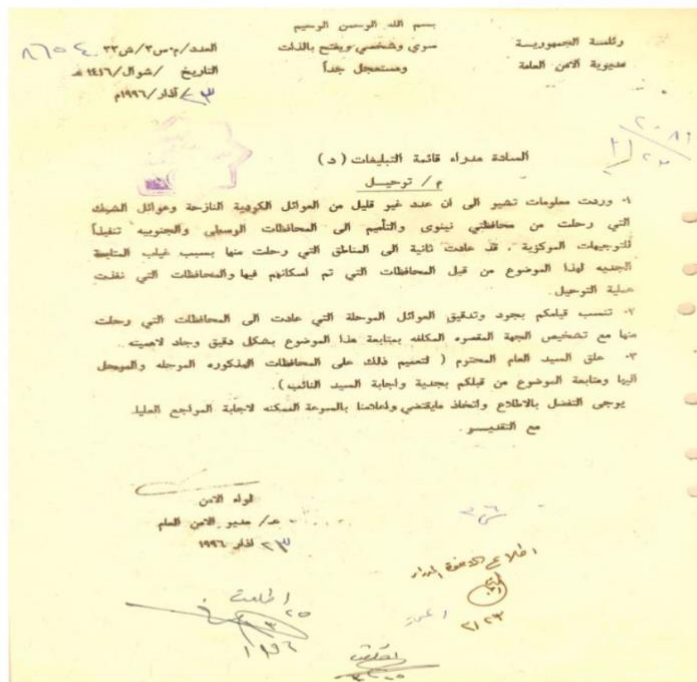 بسم الله الرحمن الرحيم
رئاسة الجمهورية
مديرية الامن العامة
سري وشخصي ويفتح بالذات
ومستعجل جداً
العدد/م.س٣/ش٣٣ ٨٦٥٤
التاريخ / شوال/١٤١٦ هـ
٢٣/آذار/١٩٩٦م
السادة مدراء قائمة التبليغات (د)
م/ ترحيل
١- وردت معلومات تشير الى ان عدد غير قليل من العوائل الكردية النازحة وعوائل الشبك
التي رحلت من محافظتي نينوى والتأميم الى المحافظات الوسطى والجنوبيه تنفيذاً
للتوجيهات المركزية ، قد عادت ثانية الى المناطق التي رحلت منها بسبب غياب المتابعة
الجديه لهذا الموضوع من قبل المحافظات التي تم اسكانهم فيها والمحافظات التي نفذت
عملية الترحيل .
٢- تنسب قيامكم بجرد وتدقيق العوائل المرحلة التي عادت الى المحافظات التي رحلت
منها مع تشخيص الجهة المقصره المكلفه بمتابعة هذا الموضوع بشكل دقيق وجاد لاهميته .
٣- علق السيد العام المحترم ( لتعميم ذالك على المحافظات المذكوره المرحله والمرحل
اليها ومتابعة الموضوع من قبلكم بجدية واجابة السيد النائب ) .
يرجى التفضل بالاطلاع واتخاذ مايقتضي واعلامنا بالسرعة الممكنه لاجابة المراجع العليا.
مع التقديـر .
لواء الامن
عـ/ مدير الامن العام
٢٣ اذار ١٩٩٦
اطلعت
١٩٩٦
اطلعت